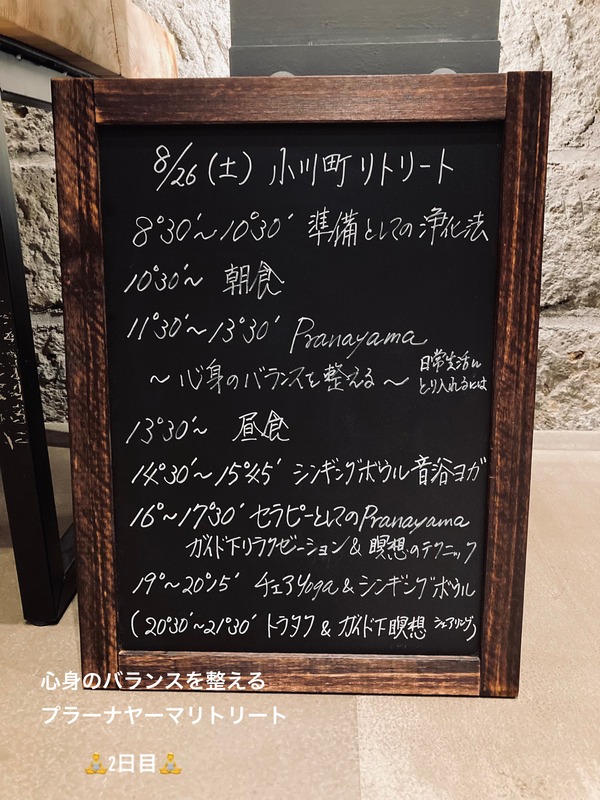 8/26(土) 小川町リトリート
8°30′～10°30′ 準備としての浄化法
10°30′～ 朝食
11°30′～13°30′ Pranayama
～心身のバランスを整える～ 日常生活に
とり入れるには
13°30′～ 昼食
14°30′～15°45′ シンギングボウル音浴ヨガ
16°～17°30′ セラピーとしてのPranayama
ガイド下リラクゼーション & 瞑想のテクニック
19°～20°15′ チェアYoga & シンギングボウル
(20°30′～21°30′ トラタク & ガイド下瞑想 シェアリング)
心身のバランスを整える
プラーナヤーマリトリート
🧘2日目🧘